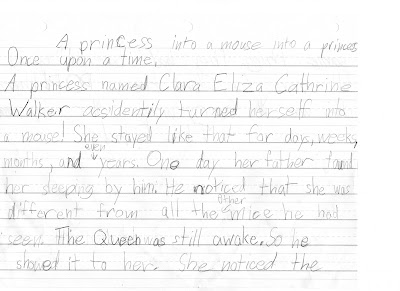 A princess into a mouse into a princess
Once upon a time,
A princess named Clara Eliza Cathrine
Walker accidentily turned herself into
a mouse! She stayed like that for days, weeks,
months, and even years. One day her father found
her sleeping by him. He noticed that she was
different from all the other mice he had
seen. The Queen was still awake. So he
showed it to her. She noticed the